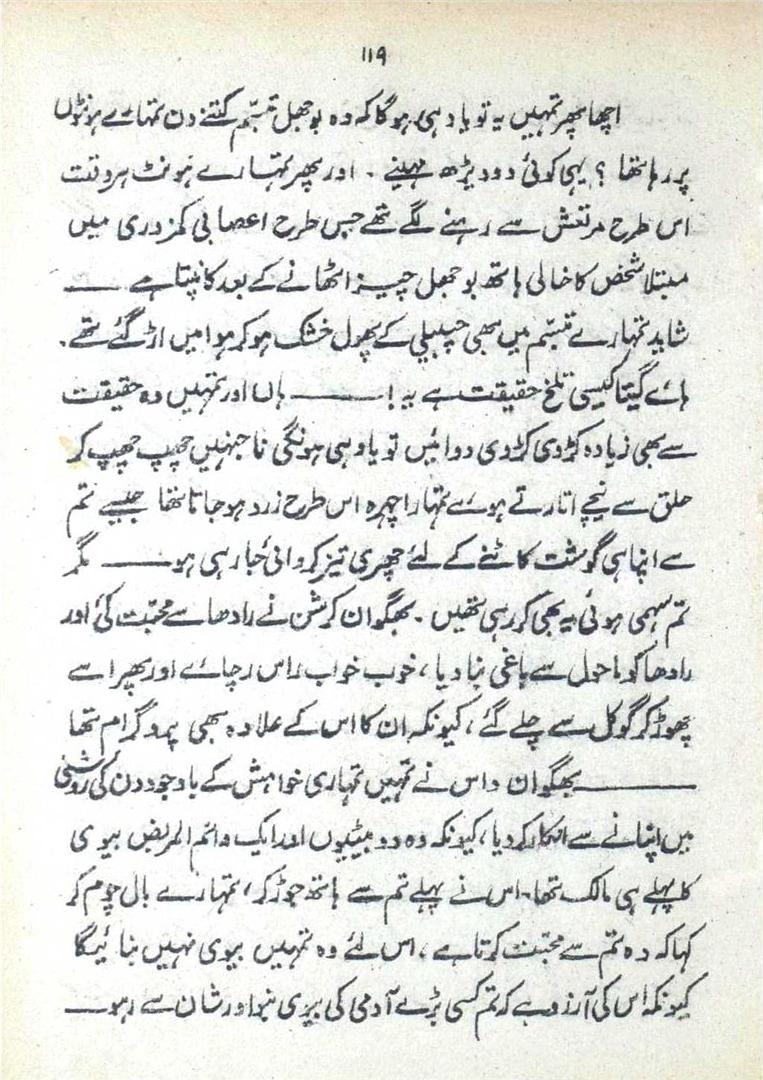 ۱۱۹
اچھا پھر تمہیں یہ تو یاد ہی ہو گا کہ وہ بوجھل تبسّم کتنے دن تمہارے ہونٹوں
پر رہا تھا ؟ یہی کوئی دو ڈیڑھ مہینے ۔ اور پھر تمہارے ہونٹ ہر وقت
اس طرح مرتعش سے رہنے لگے تھے جس طرح اعصابی کمزوری میں
مبتلا شخص کا خالی ہاتھ بوجھل چیز اٹھانے کے بعد کانپتا ہے ——
شاید تمہارے تبسّم میں بھی چنبیلی کے پھول خشک ہو کر ہوا میں اڑ گئے تھے ۔
ہائے گیتا کیسی تلخ حقیقت ہے یہ ! —— ہاں اور تمہیں وہ حقیقت
سے بھی زیادہ کڑوی کڑوی دوائیں تو یاد ہی ہونگی نا جنہیں چھپ چھپ کر
حلق سے نیچے اتارتے ہوئے تمہارا چہرہ اس طرح زرد ہو جاتا تھا جیسے تم
سے اپنا ہی گوشت کاٹنے کے لئے چھری تیز کروائی جا رہی ہو —— مگر
تم سہمی ہوئی یہ بھی کر رہی تھیں ۔ بھگوان کرشن نے رادھا سے محبّت کی اور
رادھا کو ماحول سے باغی بنا دیا ، خوب خواب راس رچائے اور پھر اسے
چھوڑ کر گوکل سے چلے گئے ، کیونکہ ان کا اس کے علاوہ بھی پروگرام تھا
—— بھگوان داس نے تمہیں تمہاری خواہش کے باوجود دن کی روشنی
میں اپنانے سے انکار کر دیا ، کیونکہ وہ دو بیٹیوں اور ایک دائم المریض بیوی
کا پہلے ہی مالک تھا ۔ اس نے پہلے تم سے ہاتھ جوڑ کر ، تمہارے بال چوم کر
کہا کہ وہ تم سے محبّت کرتا ہے ، اس لئے وہ تمہیں بیوی نہیں بنائیگا
کیونکہ اس کی آرزو ہے کہ تم کسی بڑے آدمی کی بیوی بنو اور شان سے رہو ——